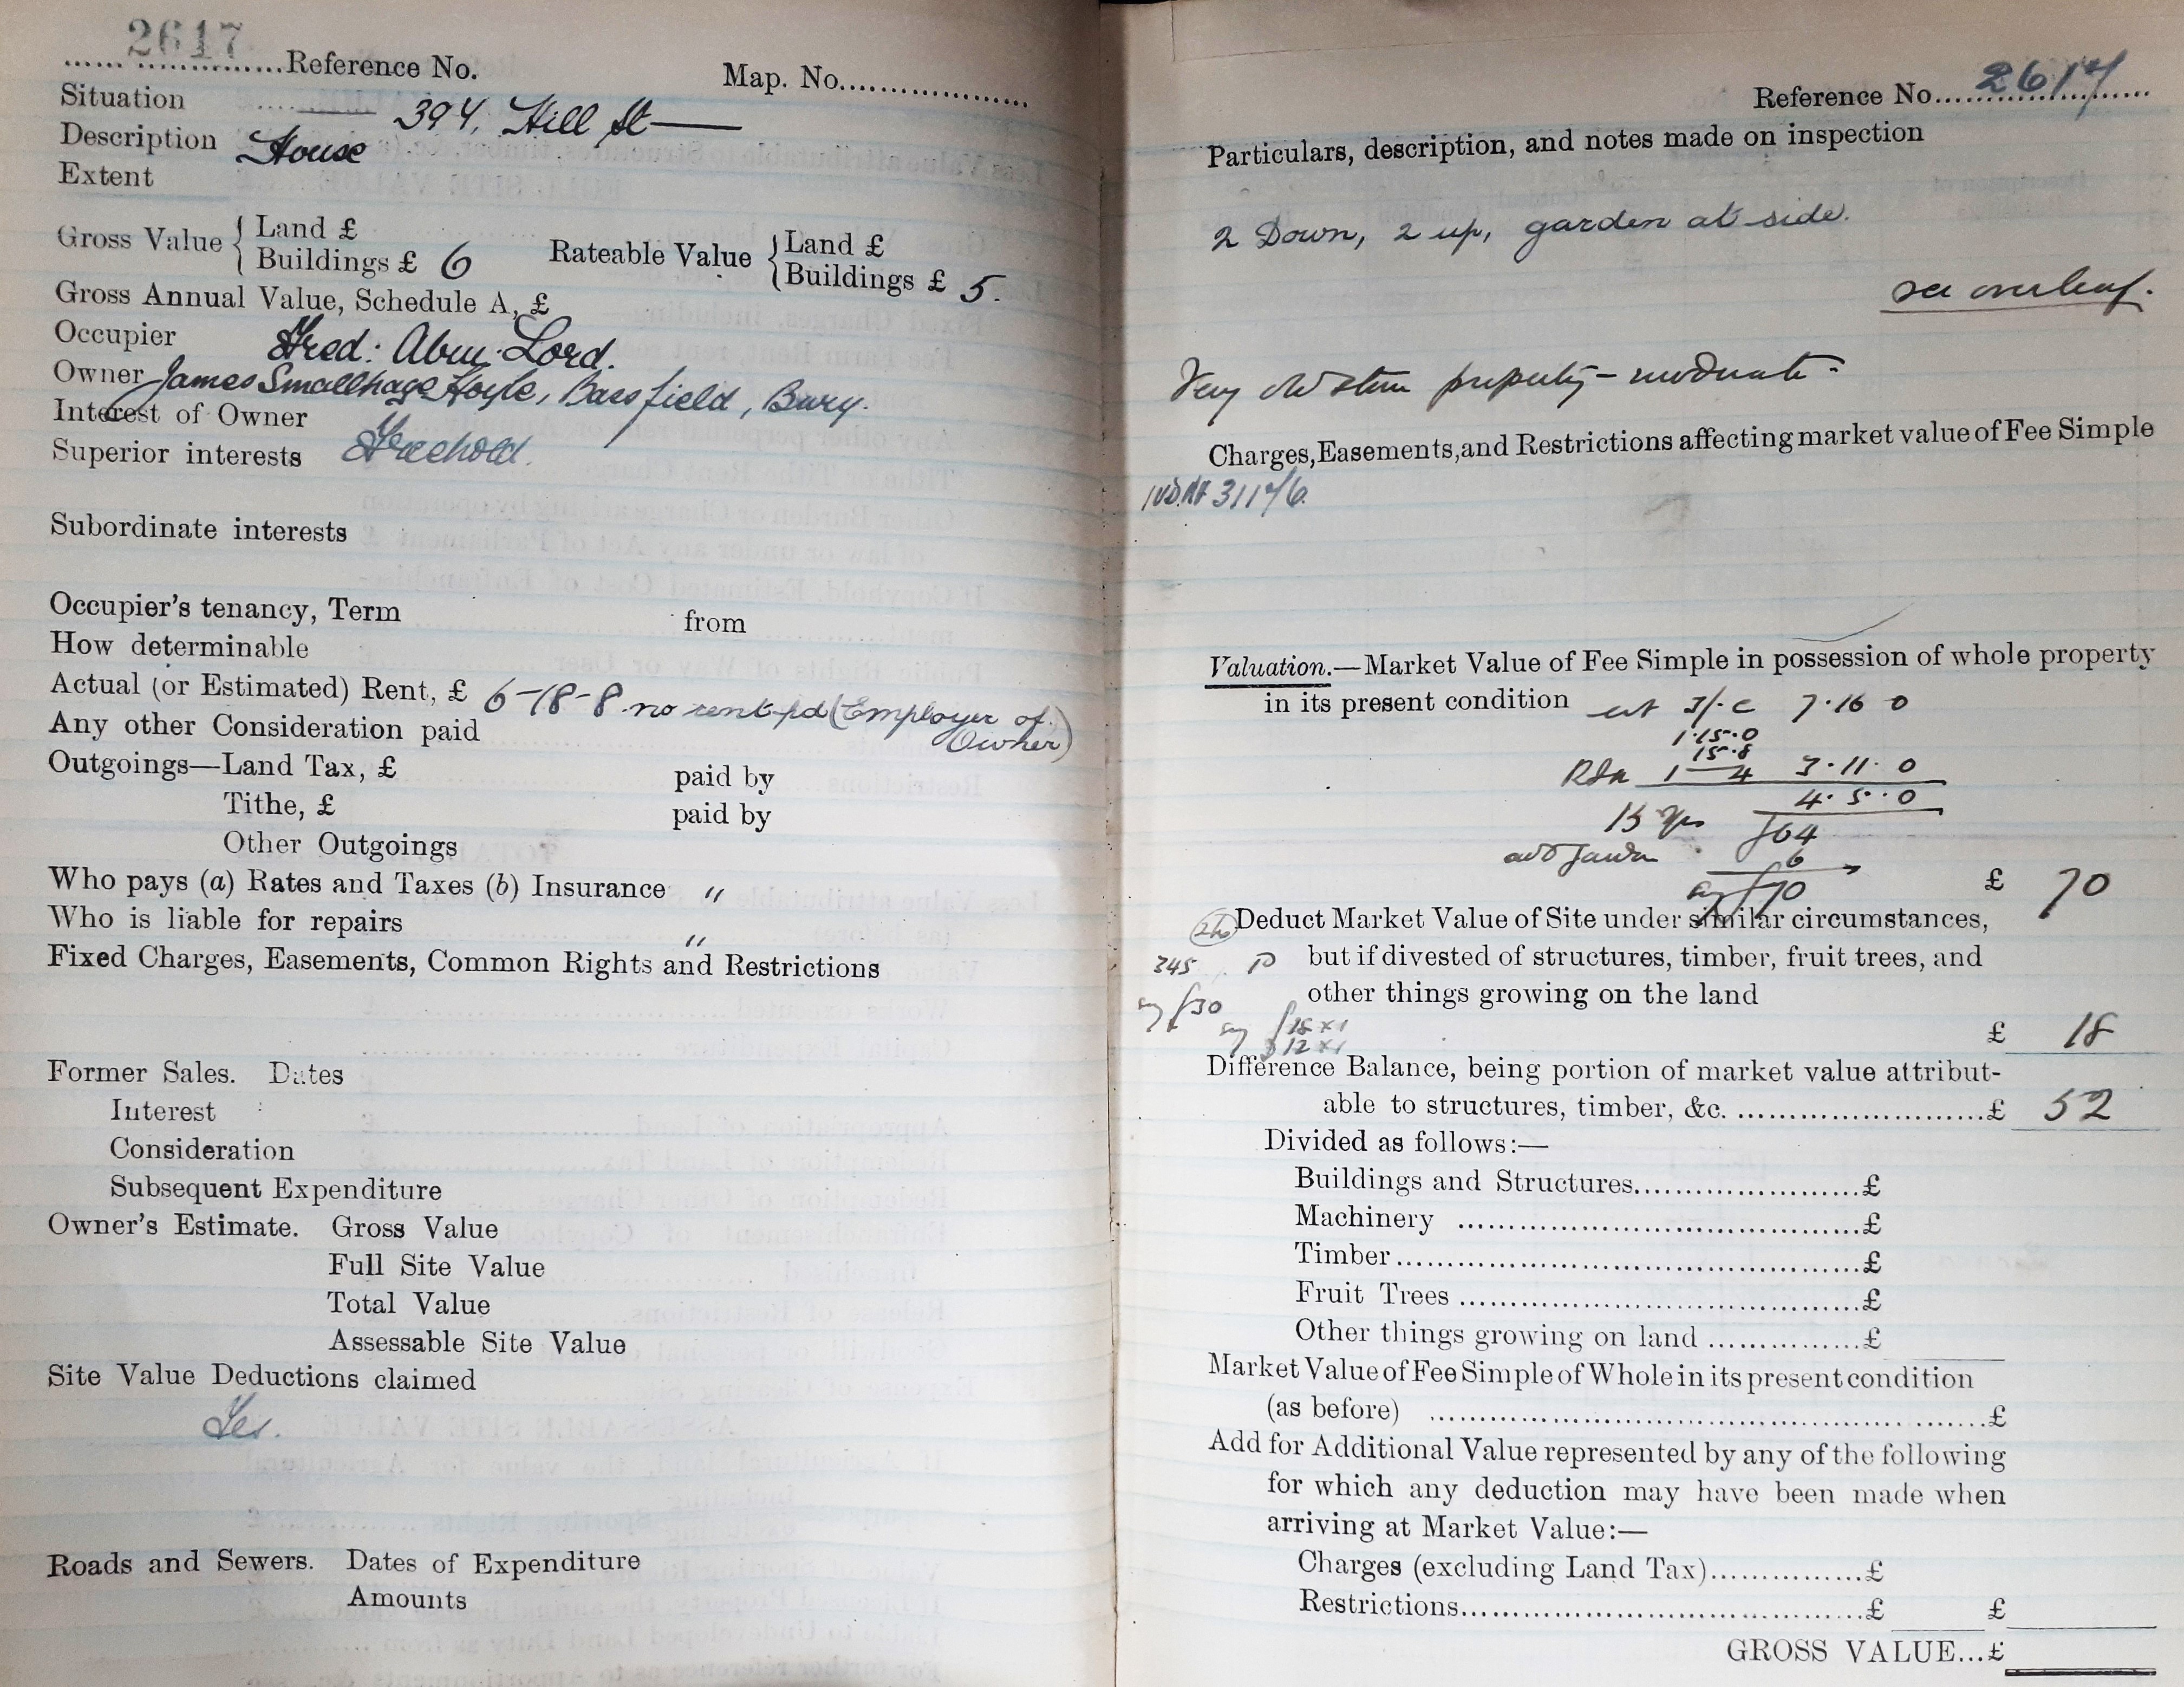 2617
Reference No. Map. No.
Situation 394, Hill St
Description House
Extent
Gross Value { Land £
Buildings £ 6
Rateable Value { Land £
Buildings £ 5.
Gross Annual Value, Schedule A, £
Occupier Fred: Abm. Lord.
Owner James Smallhage Hoyle, Bassfield, Bury.
Interest of Owner
Freehold.
Superior interests
Subordinate interests
Occupier's tenancy, Term from
How determinable
Actual (or Estimated) Rent, £ 6-18-8 no rent pd (Employer of
Owner)
Any other Consideration paid
Outgoings—Land Tax, £ paid by
Tithe, £ paid by
Other Outgoings
Who pays (a) Rates and Taxes (b) Insurance "
Who is liable for repairs "
Fixed Charges, Easements, Common Rights and Restrictions
Former Sales. Dates
Interest
Consideration
Subsequent Expenditure
Owner's Estimate. Gross Value
Full Site Value
Total Value
Assessable Site Value
Site Value Deductions claimed
Yes.
Roads and Sewers. Dates of Expenditure
Amounts
Reference No. 2617
Particulars, description, and notes made on inspection
2 Down, 2 up, garden at side.
see overleaf.
Very old stone property – moderate
Charges, Easements, and Restrictions affecting market value of Fee Simple
3117/6.
Valuation.—Market Value of Fee Simple in possession of whole property
in its present condition est 3/- 7.16 0
1.15.0
15.8
1 — 4 3.11.0
4.5.0
15 yrs £64
add Garden 6
say £70 £ 70
Deduct Market Value of Site under similar circumstances,
345 but if divested of structures, timber, fruit trees, and
say £30 other things growing on the land
say £18 x 1
12 x 1
£ 18
Difference Balance, being portion of market value attribut-
able to structures, timber, &c. £ 52
Divided as follows:—
Buildings and Structures £
Machinery £
Timber £
Fruit Trees £
Other things growing on land £
Market Value of Fee Simple of Whole in its present condition
(as before) £
Add for Additional Value represented by any of the following
for which any deduction may have been made when
arriving at Market Value:—
Charges (excluding Land Tax) £
Restrictions £ £
GROSS VALUE...£